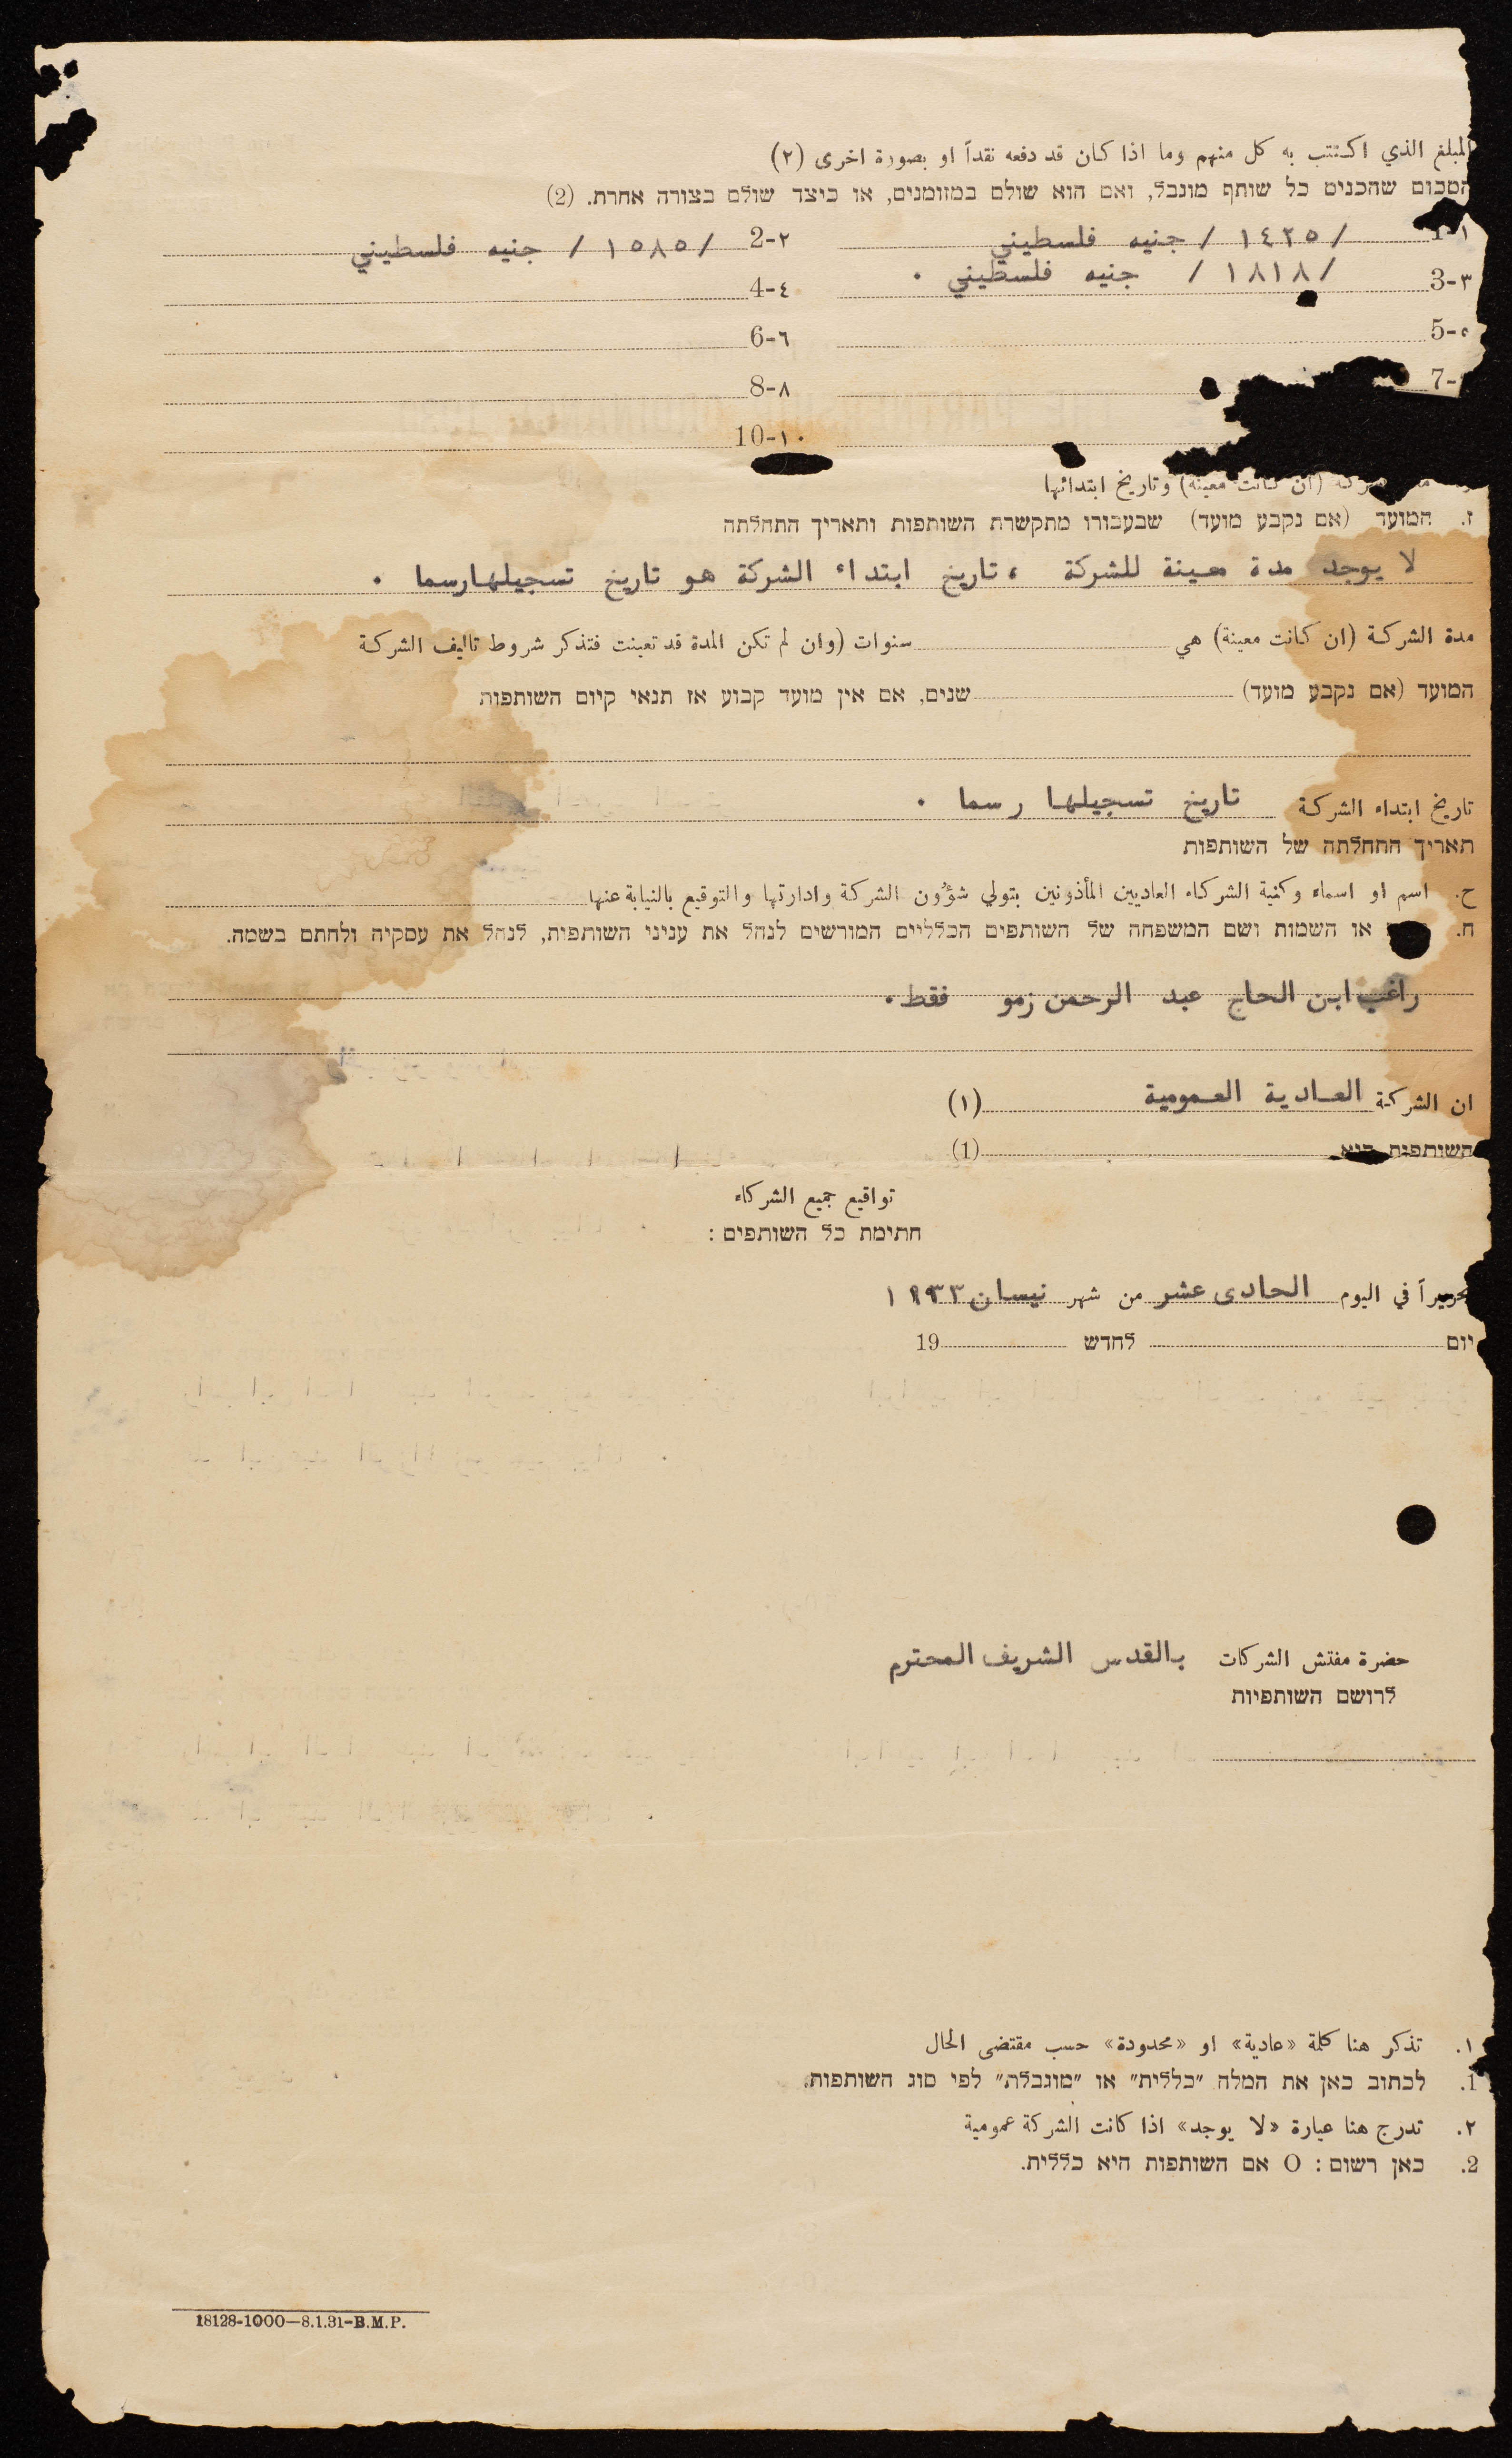 المبلغ الذي اكتتب به كل منهم وما اذا كان قد دفعه نقداً او بصورة اخرى (٢)
הסכום שהכניס כל שותף מוגבל, ואם הוא שולם במזומנים, או כיצד שולם בצורה אחרת. (2)
1-١ /١٤٢٥ / جنيه فلسطيني 2-٢ /١٥٨٥ / جنيه فلسطيني
3-٣ /١٨١٨ / جنيه فلسطيني . 4-٤
5-٥ 6-٦
7- 8-٨
10-١٠
(ان كانت معينة) وتاريخ ابتدائها
ז. המועד (אם נקבע מועד) שבעבורו מתקשרת השותפות ותאריך התחלתה
لا يوجد مدة معينة للشركة ، تاريخ ابتداء الشركة هو تاريخ تسجيلها رسما .
مدة الشركة (ان كانت معينة) هي سنوات (وان لم تكن المدة قد تعينت فتذكر شروط تاليف الشركة
המועד (אם נקבע מועד) שנים, אם אין מועד קבוע אז תנאי קיום השותפות
تاريخ ابتداء الشركة تاريخ تسجيلها رسما .
תאריך התחלתה של השותפות
ح. اسم او اسماء وكنية الشركاء العاديين المأذونين بتولي شؤون الشركة وادارتها والتوقيع بالنيابة عنها
ח. או השמות ושם המשפחה של השותפים הכלליים המורשים לנהל את עניני השותפות, לנהל את עסקיה ולחתם בשמה.
راغب ابن الحاج عبد الرحمن زمو فقط .
ان الشركة العادية العمومية (١)
השותפות היא (1)
تواقيع جميع الشركاء
חתימת כל השותפים :
تحريراً في اليوم الحادى عشر من شهر نيسان ١٩٣٣
יום לחדש 19
حضرة مفتش الشركات بالقدس الشريف المحترم
לרושם השותפיות
١. تذكر هنا كلمة «عادية» او «محدودة» حسب مقتضى الحال
1. לכתוב כאן את המלה "כללית" או "מוגבלת" לפי סוג השותפות.
٢. تدرج هنا عبارة «لا يوجد» اذا كانت الشركة عمومية
2. כאן רשום : O אם השותפות היא כללית.
18128-1000—8.1.31-B.M.P.